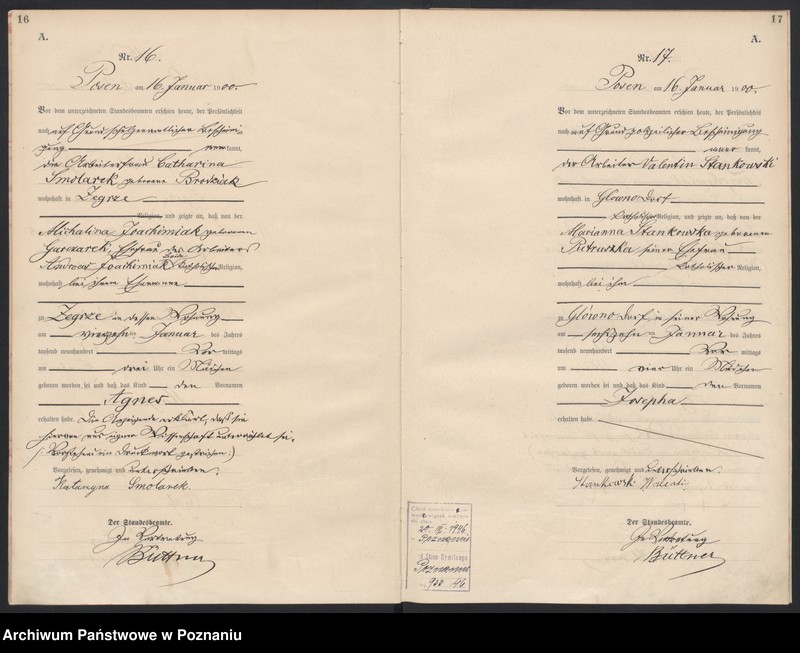 16
A.
Nr. 16.
Posen am 16. Januar 1900.
Vor dem unterzeichneten Standesbeamten erschien heute, der Persönlichkeit
nach auf Grund schutzamtlicher Bescheini-
gung kannt,
die Arbeiterfrau Catharina
Smolarek geborene Brodziak
wohnhaft in Zegrze
Religion, und zeigte an, daß von der
Michalina Joachimiak geborenen
Garczarek, Ehefrau des Arbeiters
Andreas Joachimiak, beide katholischer Religion,
wohnhaft bei ihrem Ehemanne
zu Zegrze in dessen Wohnung
am vierzehnten Januar des Jahres
tausend neunhundert Vor mittags
um drei Uhr ein Mädchen
geboren worden sei und daß das Kind den Vornamen
Agnes
erhalten habe. Die Anzeigende erklärt, daß sie
hiervon aus eigner Wissenschaft unterrichtet sei.
/: Vorstehend ein Druckwort gestrichen :/
Vorgelesen, genehmigt und unterschrieben.
Katarzyna Smolarek.
Der Standesbeamte.
In Vertretung
Büttner
17
A.
Nr. 17.
Posen am 16. Januar 1900.
Vor dem unterzeichneten Standesbeamten erschien heute, der Persönlichkeit
nach auf Grund polizeilicher Bescheinigung
aner kannt,
der Arbeiter Valentin Stankowski
wohnhaft in Glowno Dorf
katholischer Religion, und zeigte an, daß von der
Marianna Stankowska geborenen
Pietruszka seiner Ehefrau
katholischer Religion,
wohnhaft bei ihm
zu Glówno Dorf, in seiner Wohnung
am sechszehnten Januar des Jahres
tausend neunhundert Vor mittags
um vier Uhr ein Mädchen
geboren worden sei und daß das Kind den Vornamen
Josepha
erhalten habe.
Vorgelesen, genehmigt und unterschrieben.
Stankowski Walenti.
Der Standesbeamte.
In Vertretung
Büttner
1946
Archiwum Państwowe w Poznaniu